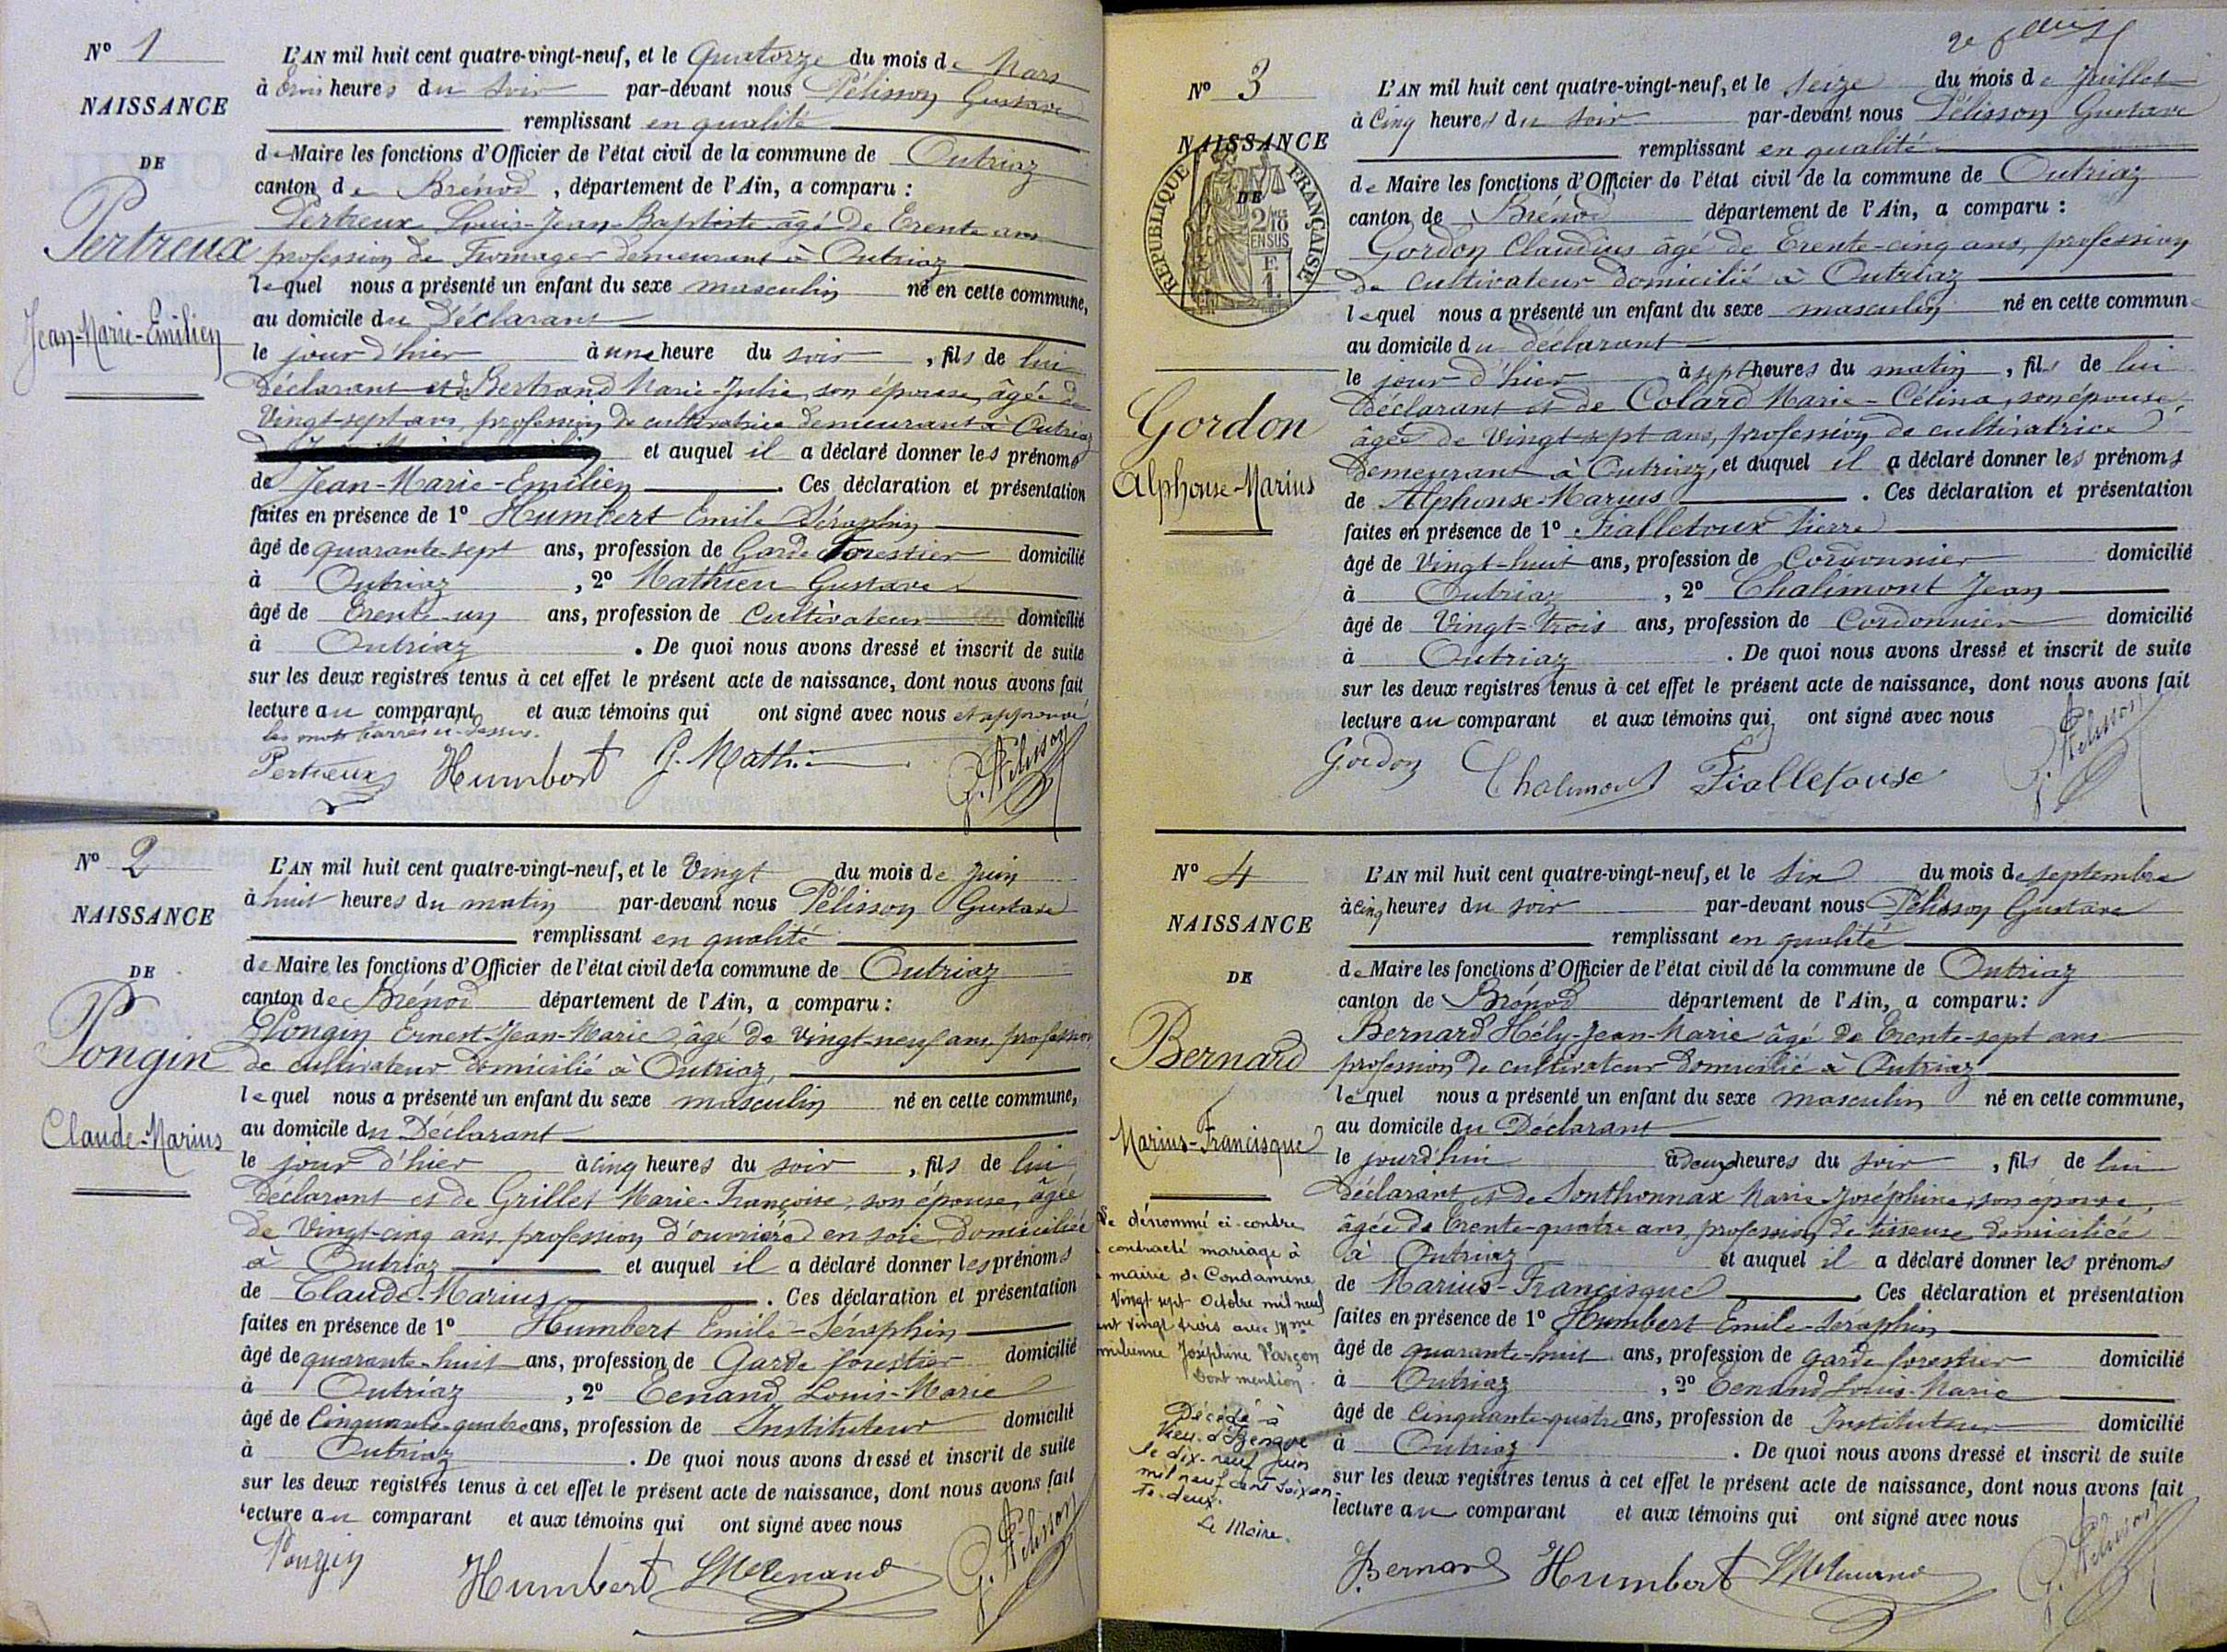 N° 1
NAISSANCE
DE
Pertreux
Jean-Marie-Emilien
L'AN mil huit cent quatre-vingt-neuf, et le Quatorze du mois de Mars
à trois heures du soir par-devant nous Pélisson Gustave
remplissant en qualité
de Maire les fonctions d'Officier de l'état civil de la commune de Outriaz
canton de Brénod, département de l'Ain, a comparu :
Pertreux Louis-Jean-Baptiste âgé de Trente ans
profession de Fromager demeurant à Outriaz
lequel nous a présenté un enfant du sexe masculin né en cette commune,
au domicile du Déclarant
le jour d'hier à une heure du soir, fils de lui
Déclarant et de Bertrand Marie-Julie, son épouse, âgée de
Vingt-sept ans, profession de cultivatrice demeurant à Outriaz
et auquel il a déclaré donner les prénoms
de Jean-Marie-Emilien. Ces déclaration et présentation
faites en présence de 1° Humbert Emile Séraphin
âgé de quarante-sept ans, profession de Garde Forestier domicilié
à Outriaz, 2° Mathieu Gustave
âgé de trente-un ans, profession de Cultivateur domicilié
à Outriaz. De quoi nous avons dressé et inscrit de suite
sur les deux registres tenus à cet effet le présent acte de naissance, dont nous avons fait
lecture au comparant et aux témoins qui ont signé avec nous et approuvé
les mots barrés ci-dessus.
Pertreux Humbert G. Mathieu G. Pélisson
N° 2
NAISSANCE
DE
Pongin
Claude-Marius
L'AN mil huit cent quatre-vingt-neuf, et le Vingt du mois de Juin
à huit heures du matin par-devant nous Pélisson Gustave
remplissant en qualité
de Maire les fonctions d'Officier de l'état civil de la commune de Outriaz
canton de Brénod département de l'Ain, a comparu :
Pongin Ernest-Jean-Marie, âgé de vingt-neuf ans, profession
de cultivateur domicilié à Outriaz,
lequel nous a présenté un enfant du sexe masculin né en cette commune,
au domicile du Déclarant
le jour d'hier à cinq heures du soir, fils de lui
Déclarant et de Grillet Marie-Françoise, son épouse, âgée
de Vingt-cinq ans, profession d'ouvrière en soie, domiciliée
à Outriaz et auquel il a déclaré donner les prénoms
de Claude-Marius. Ces déclaration et présentation
faites en présence de 1° Humbert Emile-Séraphin
âgé de quarante-huit ans, profession de Garde forestier domicilié
à Outriaz, 2° Tenand Louis-Marie
âgé de Cinquante-quatre ans, profession de Instituteur domicilié
à Outriaz. De quoi nous avons dressé et inscrit de suite
sur les deux registres tenus à cet effet le présent acte de naissance, dont nous avons fait
lecture au comparant et aux témoins qui ont signé avec nous
Pongin Humbert LMTenand G. Pélisson
N° 3
NAISSANCE
DE
RÉPUBLIQUE FRANÇAISE
2/10
EN SUS
Gordon
Alphonse-Marius
L'AN mil huit cent quatre-vingt-neuf, et le seize du mois de Juillet
à Cinq heures du soir par-devant nous Pélisson Gustave
remplissant en qualité
de Maire les fonctions d'Officier de l'état civil de la commune de Outriaz
canton de Brénod département de l'Ain, a comparu :
Gordon Claudius âgé de Trente-cinq ans, profession
de cultivateur domicilié à Outriaz
lequel nous a présenté un enfant du sexe masculin né en cette commune
au domicile du déclarant
le jour d'hier à sept heures du matin, fils de lui
Déclarant et de Colard Marie-Célina, son épouse,
âgée de vingt-sept ans, profession de cultivatrice
Demeurant à Outriaz, et auquel il a déclaré donner les prénoms
de Alphonse-Marius. Ces déclaration et présentation
faites en présence de 1° Fialletoux Pierre
âgé de Vingt-huit ans, profession de Cordonnier domicilié
à Outriaz, 2° Chalimont Jean
âgé de Vingt-trois ans, profession de Cordonnier domicilié
à Outriaz. De quoi nous avons dressé et inscrit de suite
sur les deux registres tenus à cet effet le présent acte de naissance, dont nous avons fait
lecture au comparant et aux témoins qui ont signé avec nous
Gordon Chalimont Fialletouse G. Pélisson
N° 4
NAISSANCE
DE
Bernard
Marius-Francisque
Le dénommé ci-contre
contracté mariage à
mairie de Condamine
Vingt sept Octobre mil neuf
cent vingt trois avec Mme
Joséphine Varçon
Dont mention.
Décédé à
Vieu-d'Izenave
le dix-neuf Juin
mil neuf cent soixan-
te-deux.
Le Maire.
L'AN mil huit cent quatre-vingt-neuf, et le six du mois de septembre
à cinq heures du soir par-devant nous Pélisson Gustave
remplissant en qualité
de Maire les fonctions d'Officier de l'état civil de la commune de Outriaz
canton de Brénod département de l'Ain, a comparu :
Bernard Hély-Jean-Marie âgé de Trente-sept ans
profession de cultivateur domicilié à Outriaz
lequel nous a présenté un enfant du sexe masculin né en cette commune,
au domicile du Déclarant
le jourd'hui à deux heures du soir, fils de lui
Déclarant, et de Sonthonnax Marie-Joséphine, son épouse,
âgée de trente-quatre ans, profession de tisseuse domiciliée
à Outriaz et auquel il a déclaré donner les prénoms
de Marius-Francisque. Ces déclaration et présentation
faites en présence de 1° Humbert Emile-Séraphin
âgé de quarante-huit ans, profession de garde forestier domicilié
à Outriaz, 2° Tenand Louis-Marie
âgé de Cinquante-quatre ans, profession de Instituteur domicilié
à Outriaz. De quoi nous avons dressé et inscrit de suite
sur les deux registres tenus à cet effet le présent acte de naissance, dont nous avons fait
lecture au comparant et aux témoins qui ont signé avec nous
Bernard Humbert LMTenand G. Pélisson